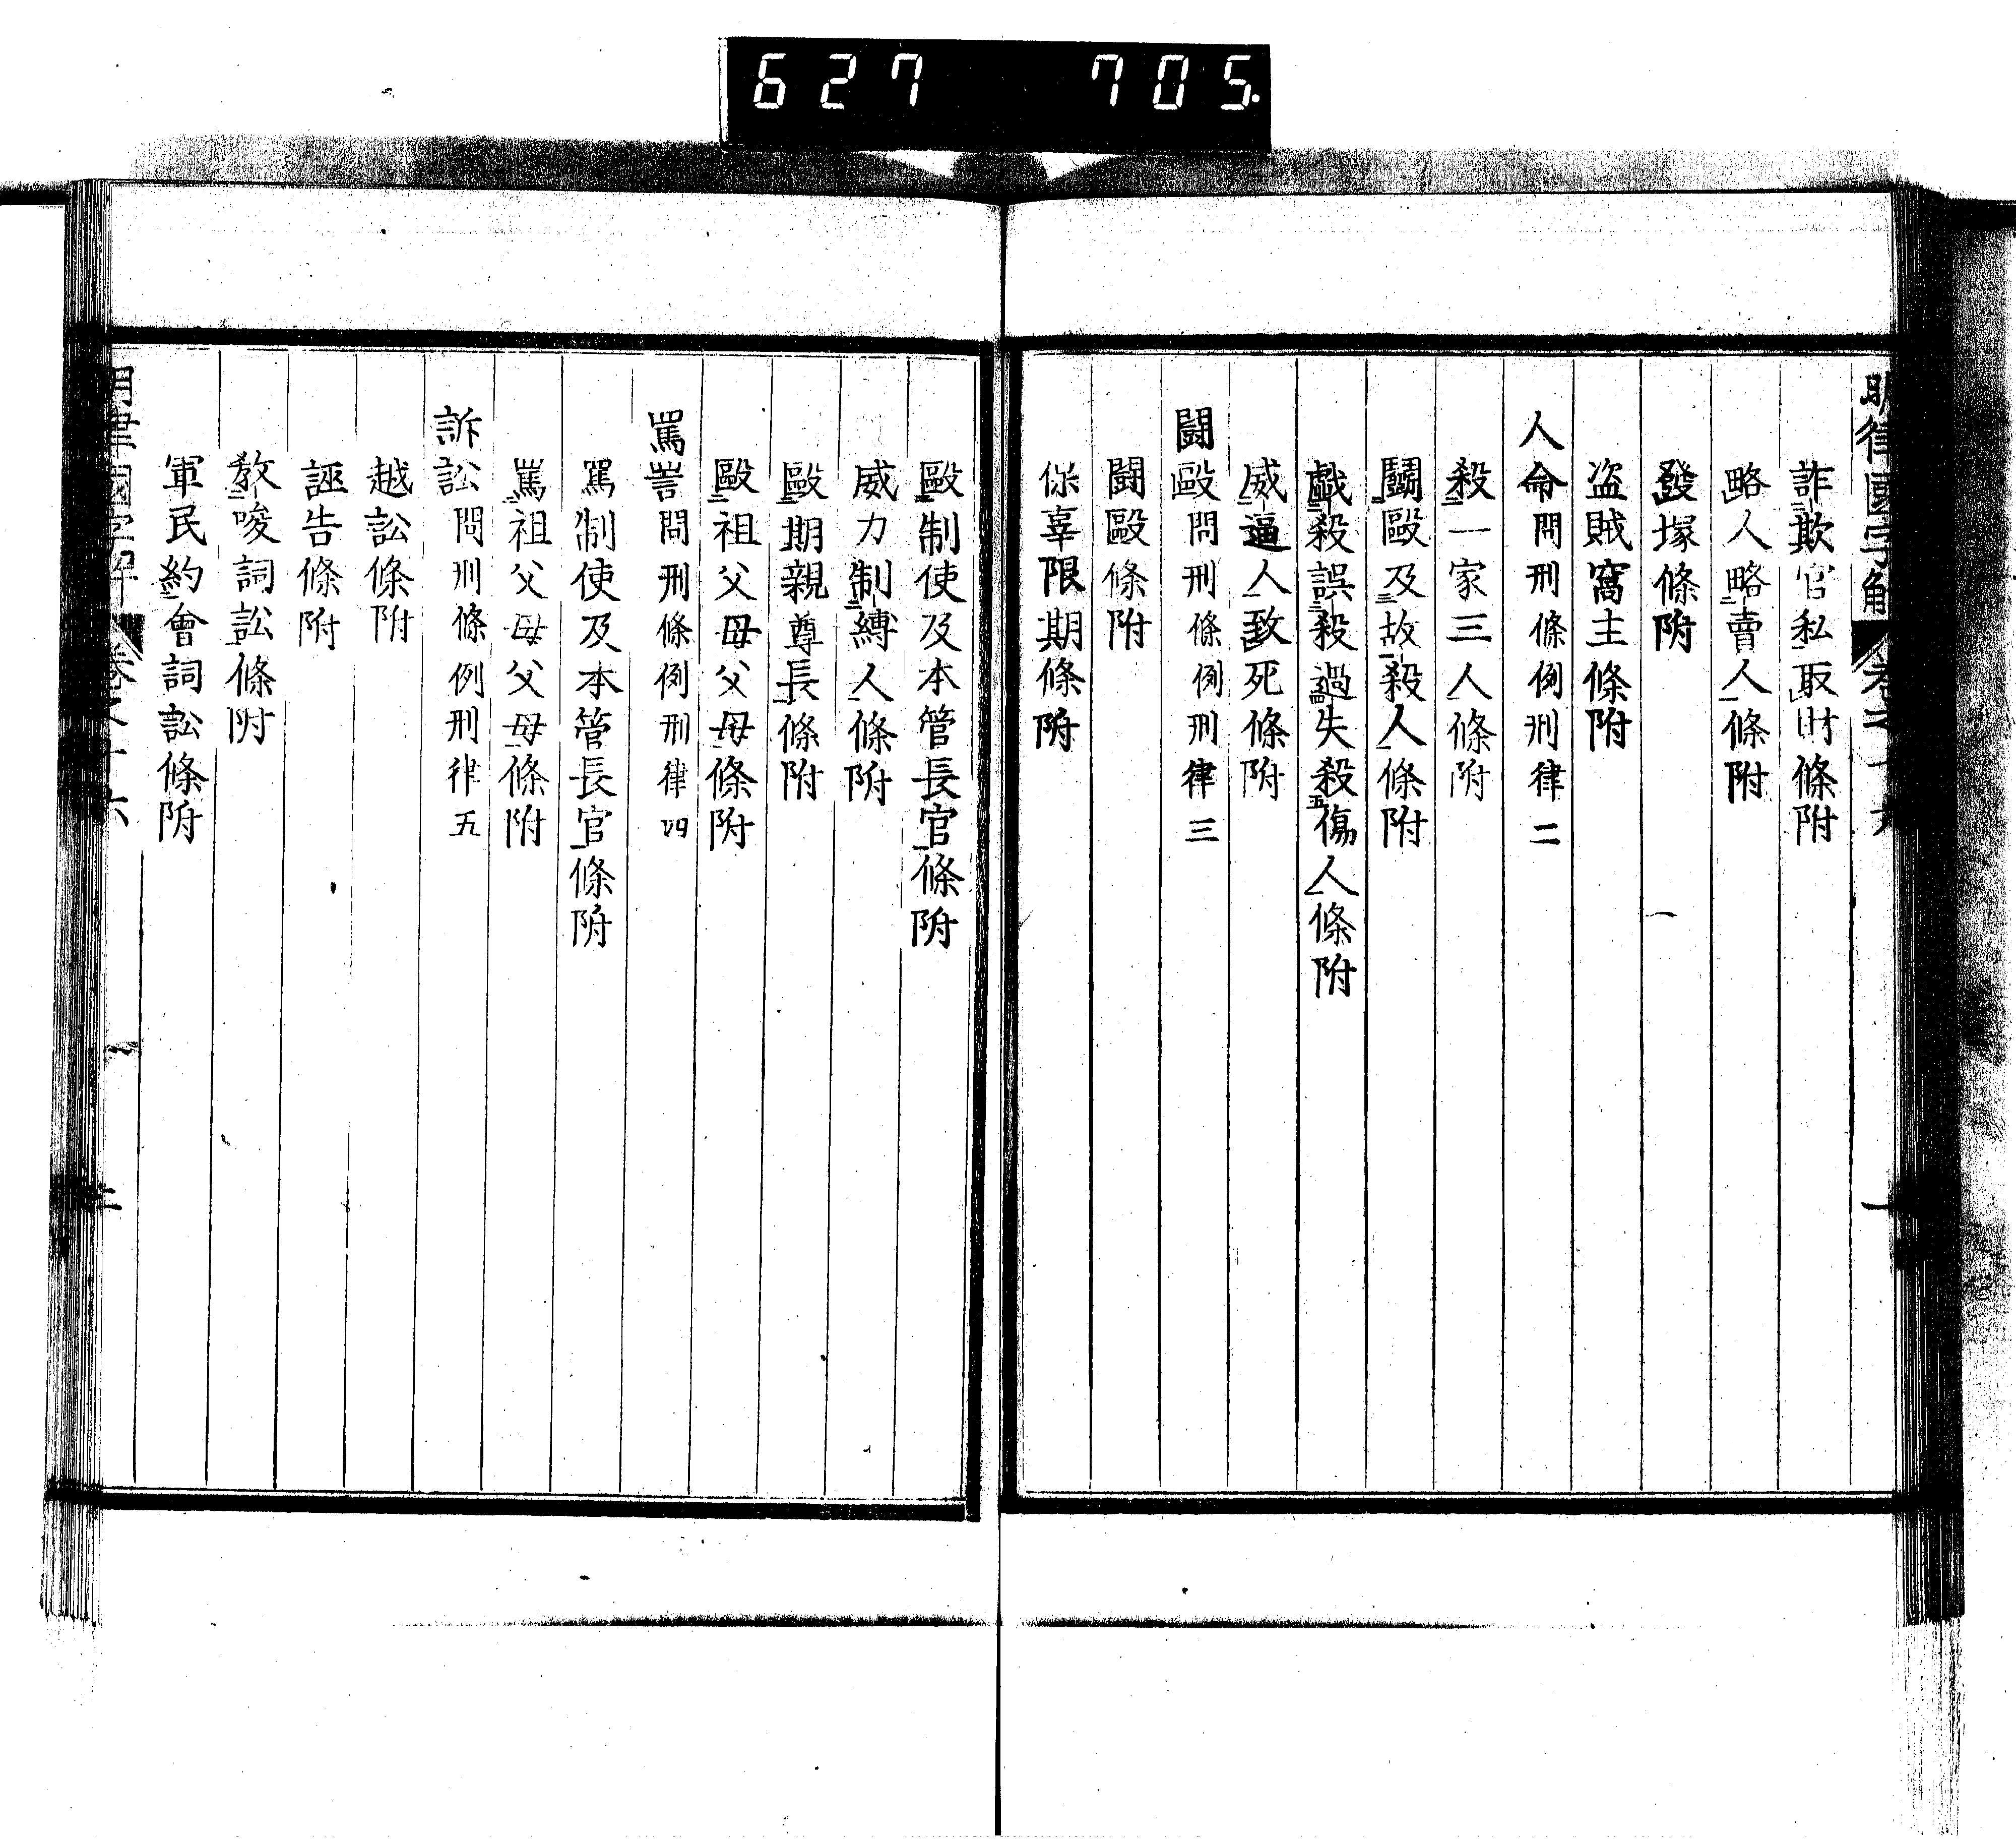 627 705.
明律國字解 卷之十六 一
詐欺官私取財條附
略人略賣人條附
發塚條附
盗賊窩主條附
人命問刑條例刑律二
殺一家三人條附
鬪毆及故殺人條附
戲殺誤殺過失殺傷人條附
威逼人致死條附
鬪毆問刑條例刑律三
鬪毆條附
保辜限期條附
毆制使及本管長官條附
威力制縛人條附
毆期親尊長條附
毆祖父母父母條附
罵詈問刑條例刑律四
罵制使及本管長官條附
罵祖父母父母條附
訴訟問刑條例刑律五
越訟條附
誣告條附
教唆詞訟條附
軍民約會詞訟條附
明律國字解 卷之十六 二